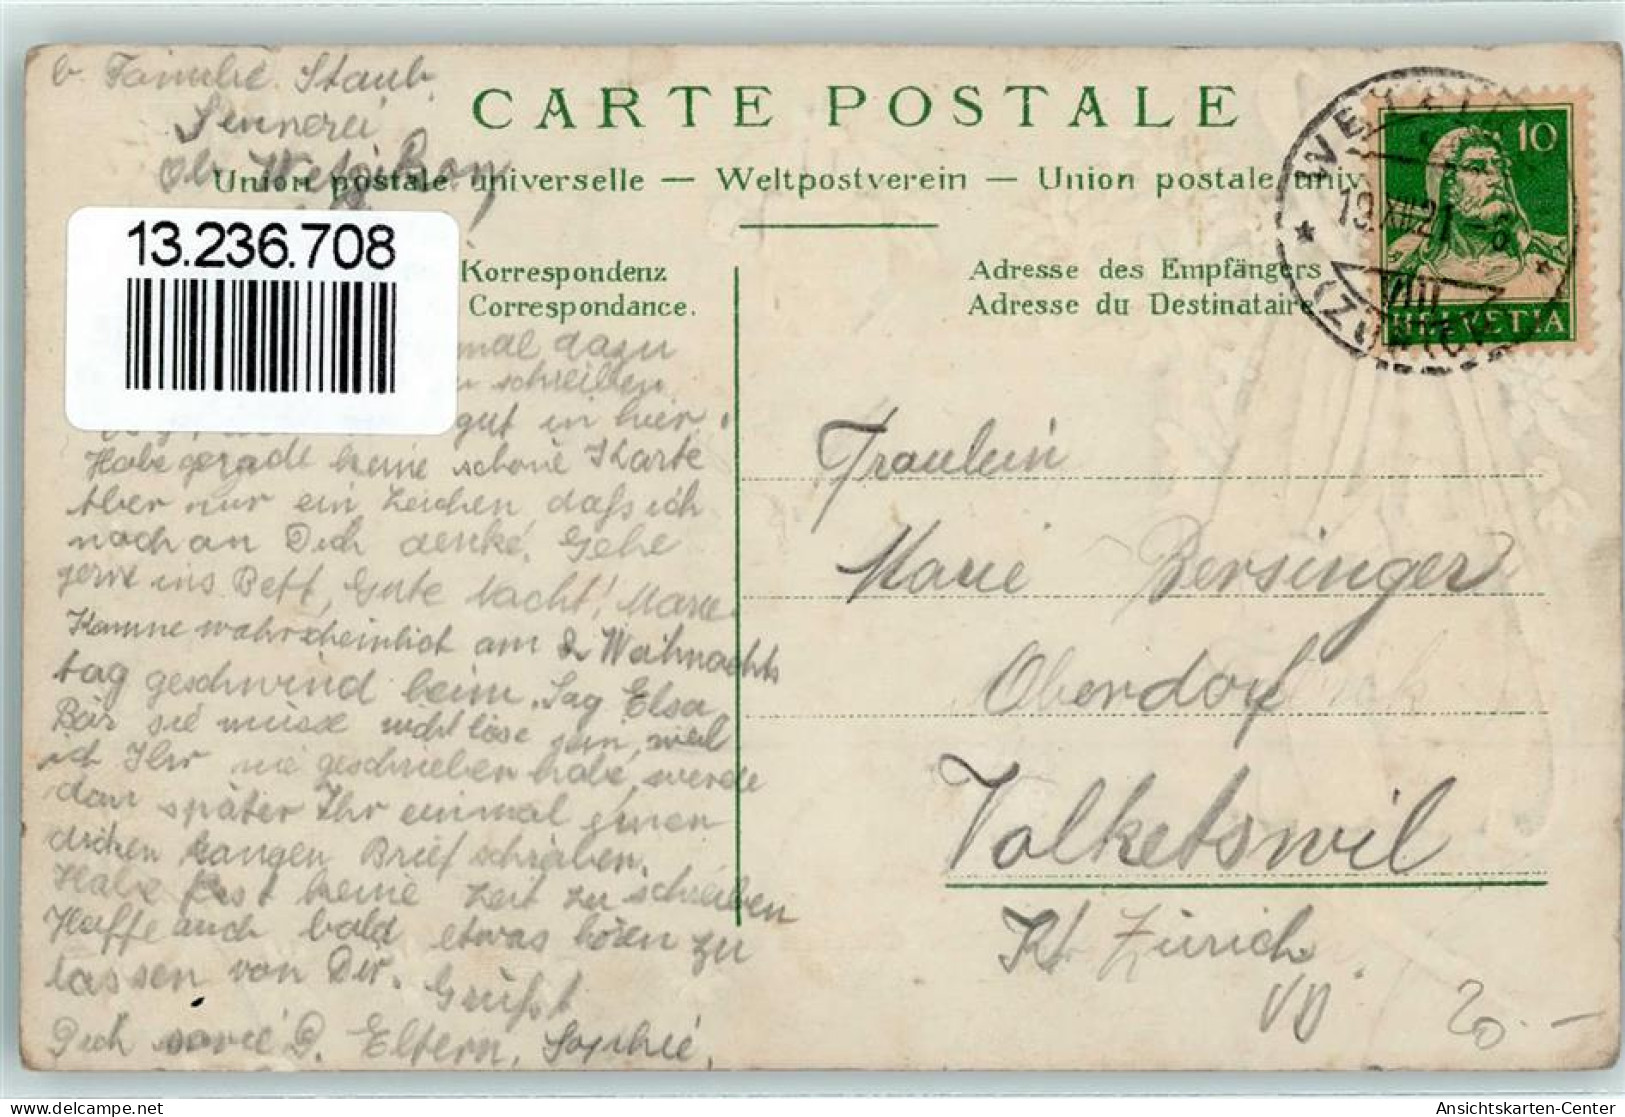 b. Familie Staub,
Sennerei
Ob. Wetzikon
CARTE POSTALE
Union postale universelle — Weltpostverein — Union postale univ
13.236.708
Korrespondenz
Correspondance.
Adresse des Empfängers
Adresse du Destinataire
WETZIKON
19.XII.21 - 6
VIII
(ZÜRICH)
10
HELVETIA
mal dazu
schreiben
gut in hier.
Habe gerade keine schöne Karte
Aber nur ein Zeichen dafs ich
noch an Dich denke. Gehe
jetzt ins Bett, Gute Nacht! Marie
Komme wahrscheinlich am 2. Weihnachts
tag geschwind heim. Sag Elsa
Bär sie müsse nicht böse sein, weil
ich Ihr nie geschrieben habe, werde
dan später Ihr einmal einen
dicken langen Brief schreiben.
Habe fast keine Zeit zu schreiben
Hoffe auch bald etwas hören zu
lassen von Dir. Grüfst
Dich sowie D. Eltern, Sophie.
Fräulein
Marie Bersinger
Oberdorf
Volketswil
Kt. Zürich
20.-
Ansichtskarten-Center